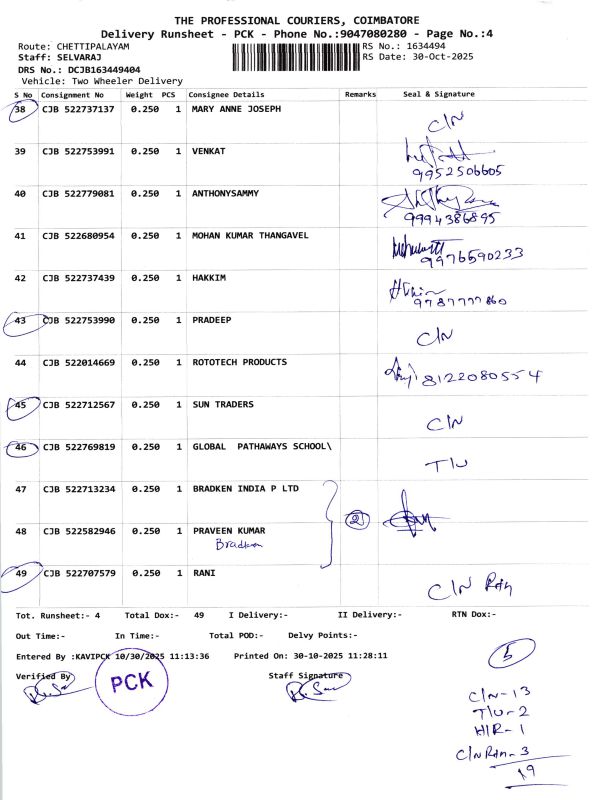 THE PROFESSIONAL COURIERS, COIMBATORE
Delivery Runsheet - PCK - Phone No.:9047080280 - Page No.:4
Route: CHETTIPALAYAM RS No.: 1634494
Staff: SELVARAJ RS Date: 30-Oct-2025
DRS No.: DCJB163449404
Vehicle: Two Wheeler Delivery
S No Consignment No Weight PCS Consignee Details Remarks Seal & Signature
38 CJB 522737137 0.250 1 MARY ANNE JOSEPH
C/N
39 CJB 522753991 0.250 1 VENKAT
9952506605
40 CJB 522779081 0.250 1 ANTHONYSAMMY
9994386895
41 CJB 522680954 0.250 1 MOHAN KUMAR THANGAVEL
9976590233
42 CJB 522737439 0.250 1 HAKKIM
9787777860
43 CJB 522753990 0.250 1 PRADEEP
C/N
44 CJB 522014669 0.250 1 ROTOTECH PRODUCTS
8122080554
45 CJB 522712567 0.250 1 SUN TRADERS
C/N
46 CJB 522769819 0.250 1 GLOBAL PATHAWAYS SCHOOL\
T/U
47 CJB 522713234 0.250 1 BRADKEN INDIA P LTD
2
48 CJB 522582946 0.250 1 PRAVEEN KUMAR
Bradken
49 CJB 522707579 0.250 1 RANI
C/N Ran
Tot. Runsheet:- 4 Total Dox:- 49 I Delivery:- II Delivery:- RTN Dox:-
Out Time:- In Time:- Total POD:- Delvy Points:-
Entered By :KAVIPCK 10/30/2025 11:13:36 Printed On: 30-10-2025 11:28:11
5
Verified By Staff Signature
PCK
C/N-13
T/U-2
H/R-1
C/N Ran-3
19